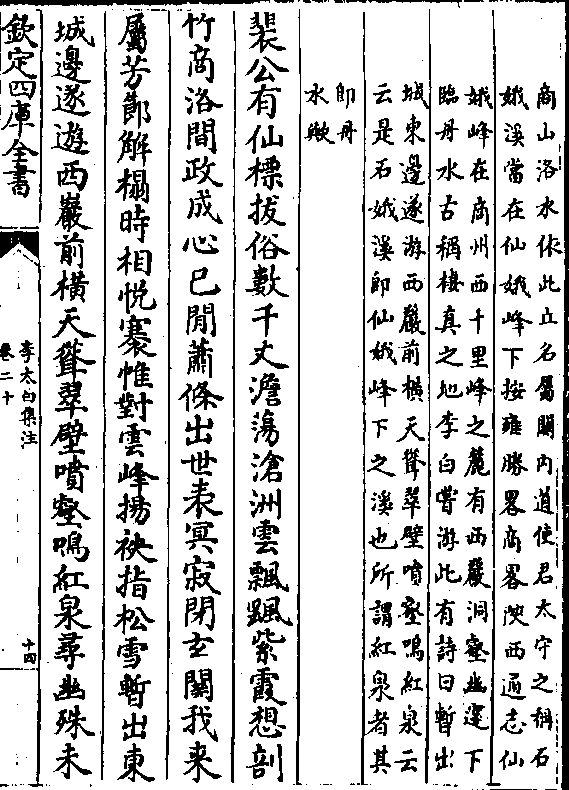 商山洛水依此立名屬關内道使君太守之稱石
娥溪當在仙娥峰下按雍勝畧商畧陜西通志仙
娥峰在商州西十里峰之麓有西巖洞壑幽邃下
臨丹水古稱棲真之地李白嘗游此有詩曰暫出
城東邊遂游西巖前横天聳翠壁噴壑鳴紅泉云
云是石娥溪即仙娥峰下之溪也所謂紅泉者其
即丹
水歟
裴公有仙標拔俗數千丈澹蕩滄洲雲飄颻紫霞想剖
竹商洛間政成心已閒蕭條出世表冥寂閉玄關我來
屬芳節解榻時相悦褰帷對雲峰揚袂指松雪暫出東
城邊遂遊西巖前横天聳翠壁噴壑鳴紅泉尋幽殊未
欽定四庫全書
李太白集注
卷二十
十四